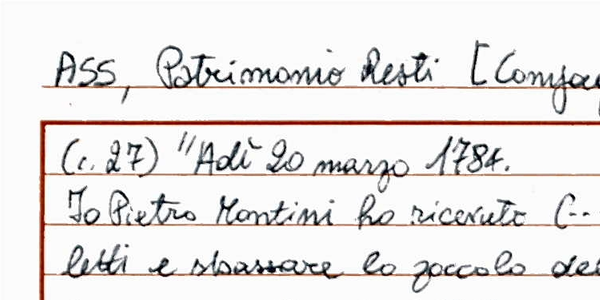 ASS, Patrimonio Resti [Compag
(c. 27) "Adì 20 marzo 1784.
Io Pietro Montini ho ricevuto (--
letti e sbassare lo zoccolo del